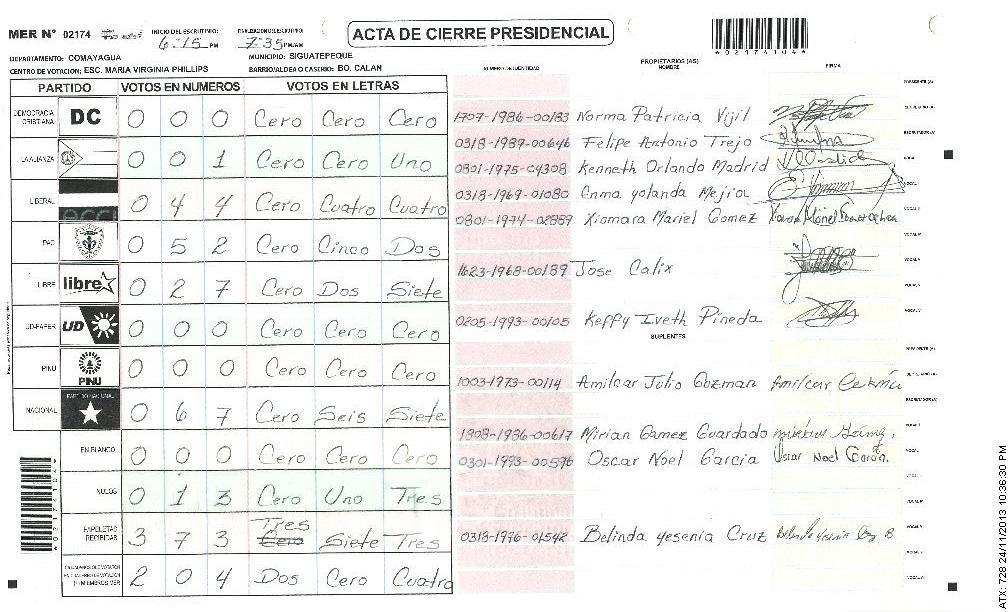 MER N° 02174
INICIO DEL ESCRUTINIO:
6:15 PM
7:35 PM/AM
ACTA DE CIERRE PRESIDENCIAL
*02174104*
DEPARTAMENTO: COMAYAGUA
MUNICIPIO: SIGUATEPEQUE
CENTRO DE VOTACION: ESC. MARIA VIRGINIA PHILLIPS
BARRIO/ALDEA O CASERIO: BO. CALAN
NUMERO DE IDENTIDAD
PROPIETARIOS (AS)
NOMBRE
FIRMA
PARTIDO VOTOS EN NUMEROS VOTOS EN LETRAS
DEMOCRACIA CRISTIANA DC 0 0 0 Cero Cero Cero
LA ALIANZA 0 0 1 Cero Cero Uno
LIBERAL 0 4 4 Cero Cuatro Cuatro
PAC 0 5 2 Cero Cinco Dos
LIBRE libre 0 2 7 Cero Dos Siete
UD-FAPER UD 0 0 0 Cero Cero Cero
PINU PINU 0 0 0 Cero Cero Cero
NACIONAL PARTIDO NACIONAL 0 6 7 Cero Seis Siete
EN BLANCO 0 0 0 Cero Cero Cero
NULOS 0 1 3 Cero Uno Tres
PAPELETAS RECIBIDAS 3 7 3 Tres Cero Siete Tres
2 0 4 Dos Cero Cuatro
1707-1986-00183 Norma Patricia Vijil
0318-1987-00646 Felipe Antonio Trejo
0801-1975-04308 Kenneth Orlando Madrid
0318-1969-01080 Enma yolanda Mejia
0801-1974-02889 Xiomara Mariel Gomez
1623-1968-00189 Jose Calix
0205-1993-00105 Keffy Iveth Pineda
SUPLENTES
1003-1973-00114 Amilcar Julio Guzman
1808-1986-00617 Mirian Gamez Guardado
0301-1993-00596 Oscar Noel Garcia Oscar Noel Garcia
0318-1976-01542 Belinda yesenia Cruz
ATX: 728 24/11/2013 10:36:30 PM